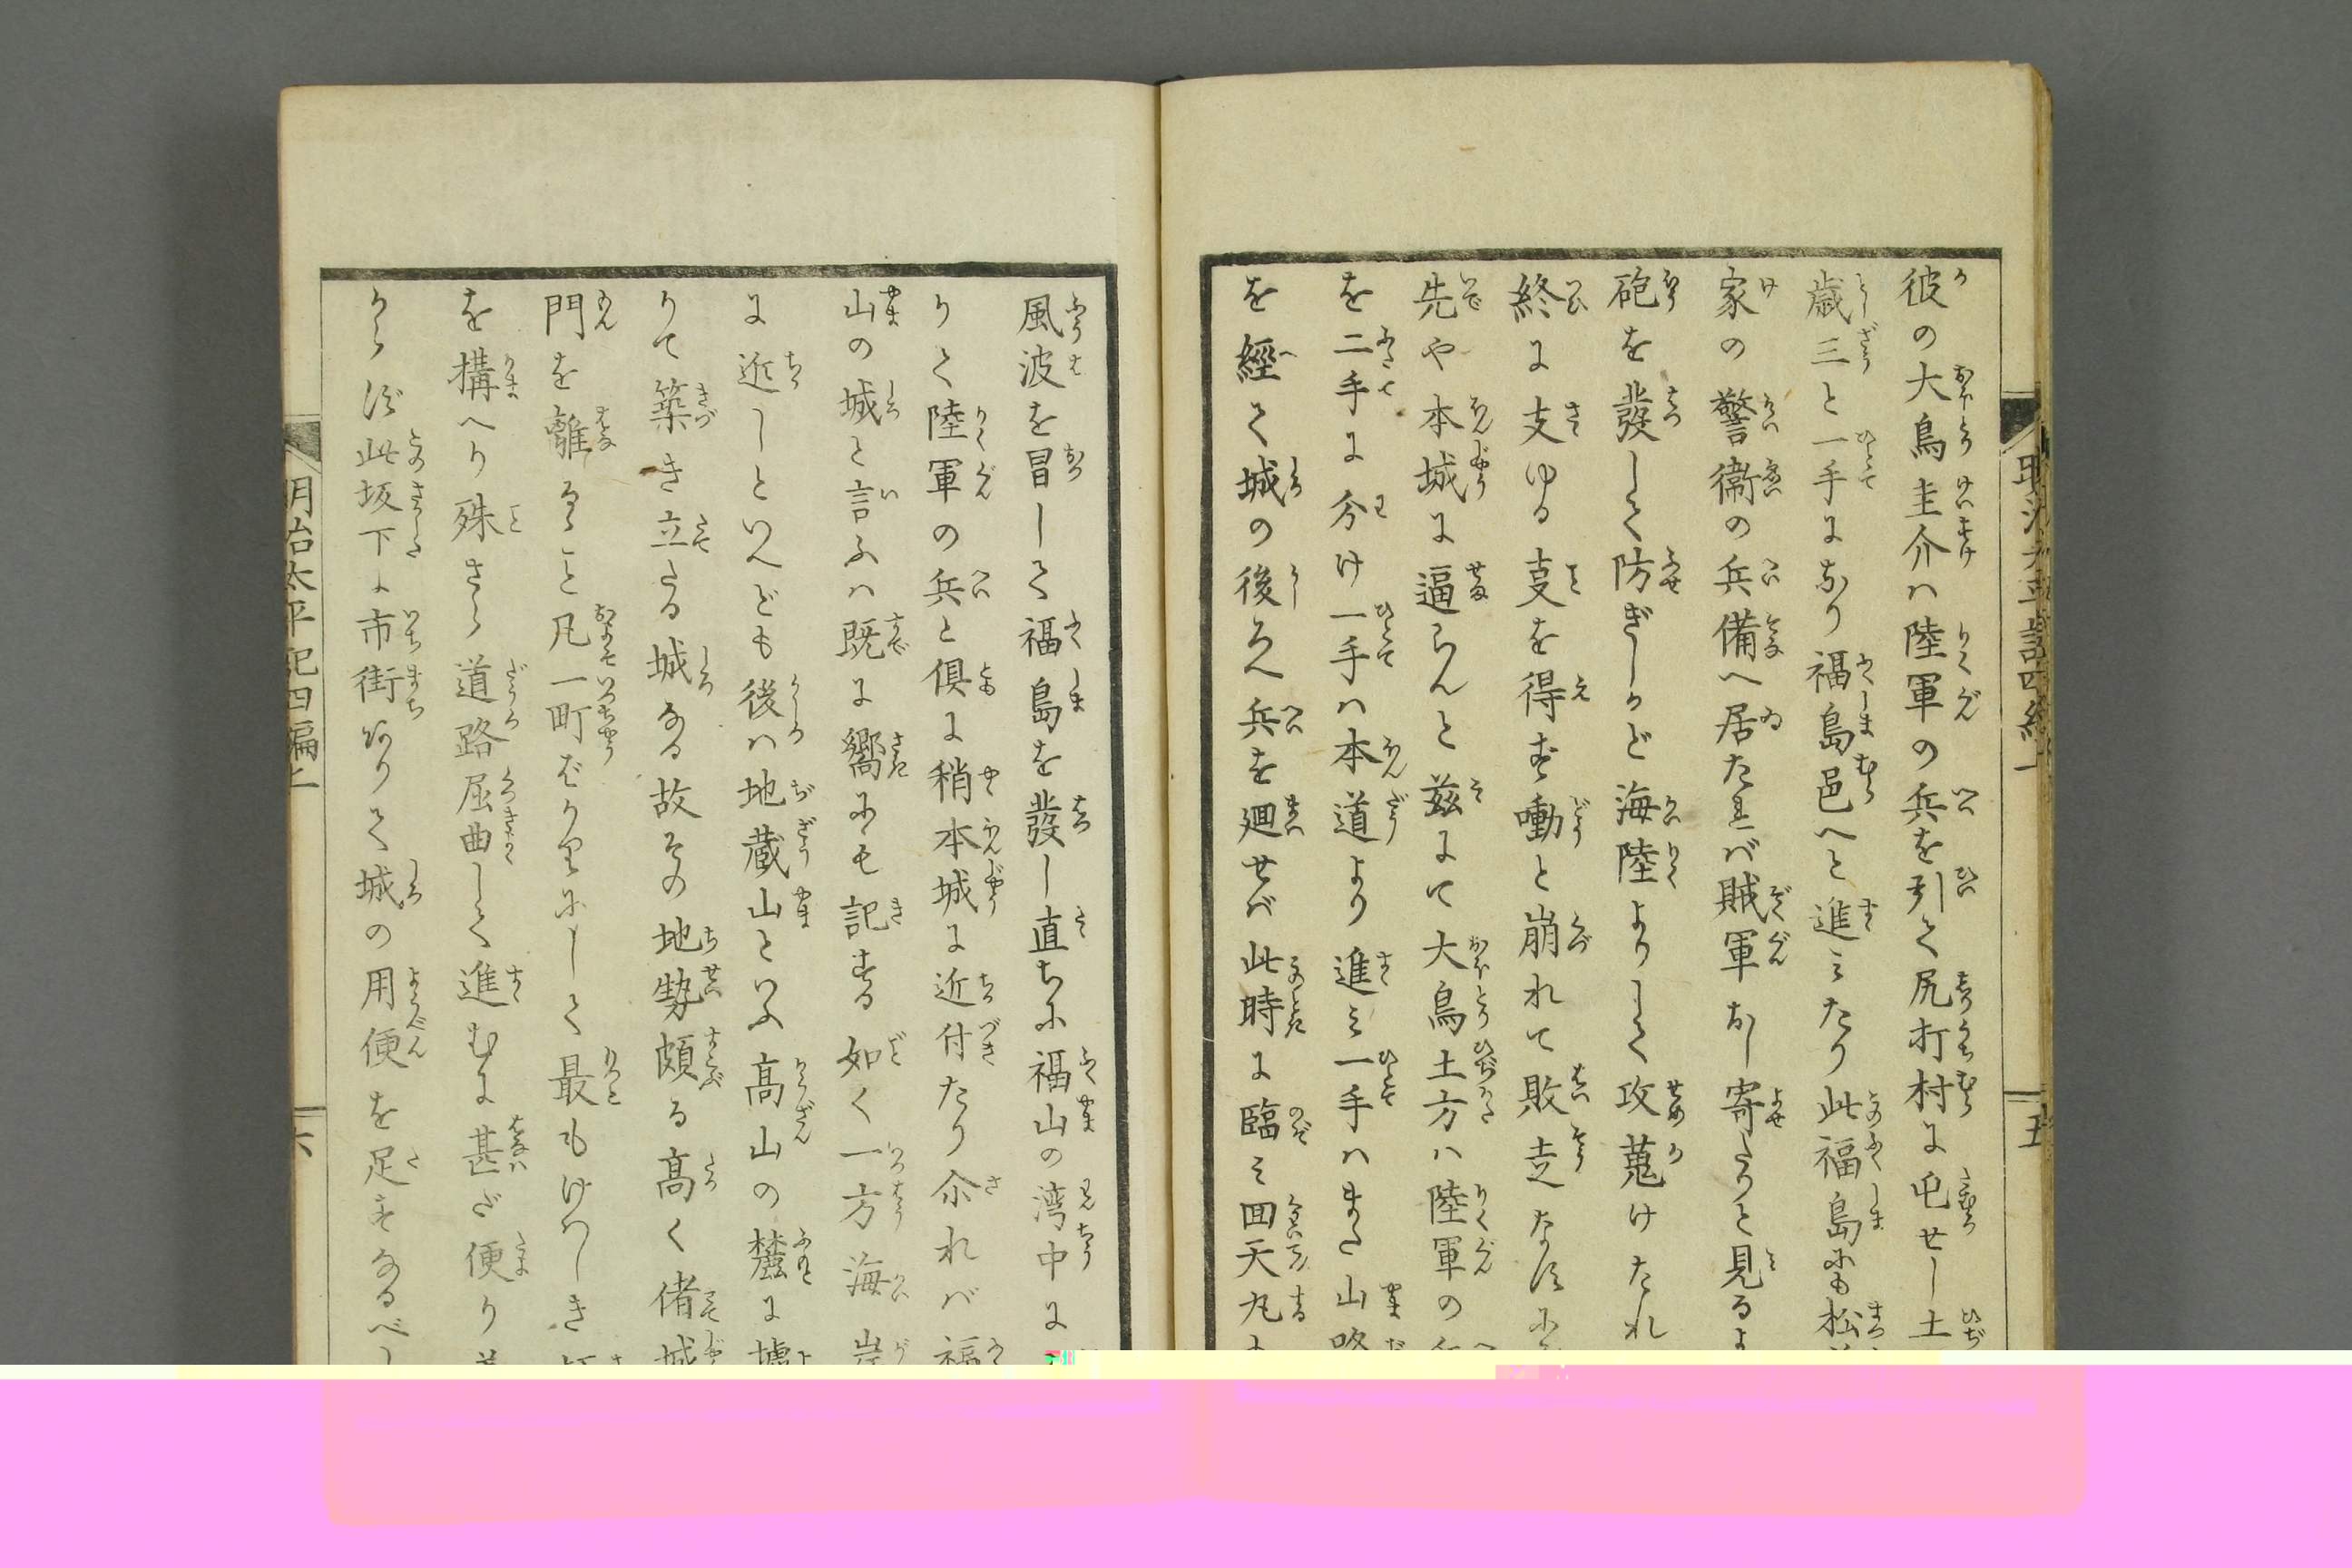 彼の大鳥圭介ハ陸軍の兵を引て尻打村に屯せし土
歳三と一手になり福島邑へと進ミたり此福島にも松
家の警衞の兵備へ居たれバ賊軍おし寄たりと見るよ
砲を發して防ぎしかど海陸よりして攻蒐けたれ
終に支ゆる事を得ず動と崩れて敗走なすに
先や本城に逼らんと茲にて大鳥土方ハ陸軍の
を二手に分け一手ハ本道より進ミ一手ハまた山路
を經て城の後ろへ兵を廻せバ此時に臨ミ回天丸
明治太平記四編上
五
風波を冒して福島を發し直ちに福山の湾中に
りて陸軍の兵と俱に稍本城に近付たり尒れバ福
山の城と言ふハ既に嚮にも記する如く一方海岸
に近しといへども後ハ地蔵山といふ高山の麓に據
りて築き立たる城なる故その地勢頗る高く偖城
門を離るゝこと凡一町ばかりにして最もけはしき
を構へり殊さら道路屈曲して進むに甚だ便り
からず此坂下に市街ありて城の用便を足すなるべし
明治太平記四編上
六